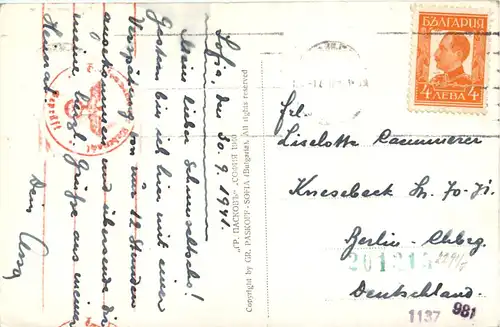 Sofia, den 30. 9. 1941.
Mein liebes
Gestern bin ich hier mit einer
Verspätung von nur 12 Stunden
angekommen und übersende Dir
meine herzl. Grüße aus meiner
Heimat.
Dein
Geprüft
"ГР. ПАСКОВЪ" - СОФИЯ 1940
Copyright by GR. PASKOFF - SOFIA (Bulgaria). All rights reserved
БЪЛГАРИЯ
4 4
ЛЕВА
Frl.
Liselotte Cammerer
Knesebeck Str. 70-71
Berlin-Chbg.
201213
Deutschland.
1137 981